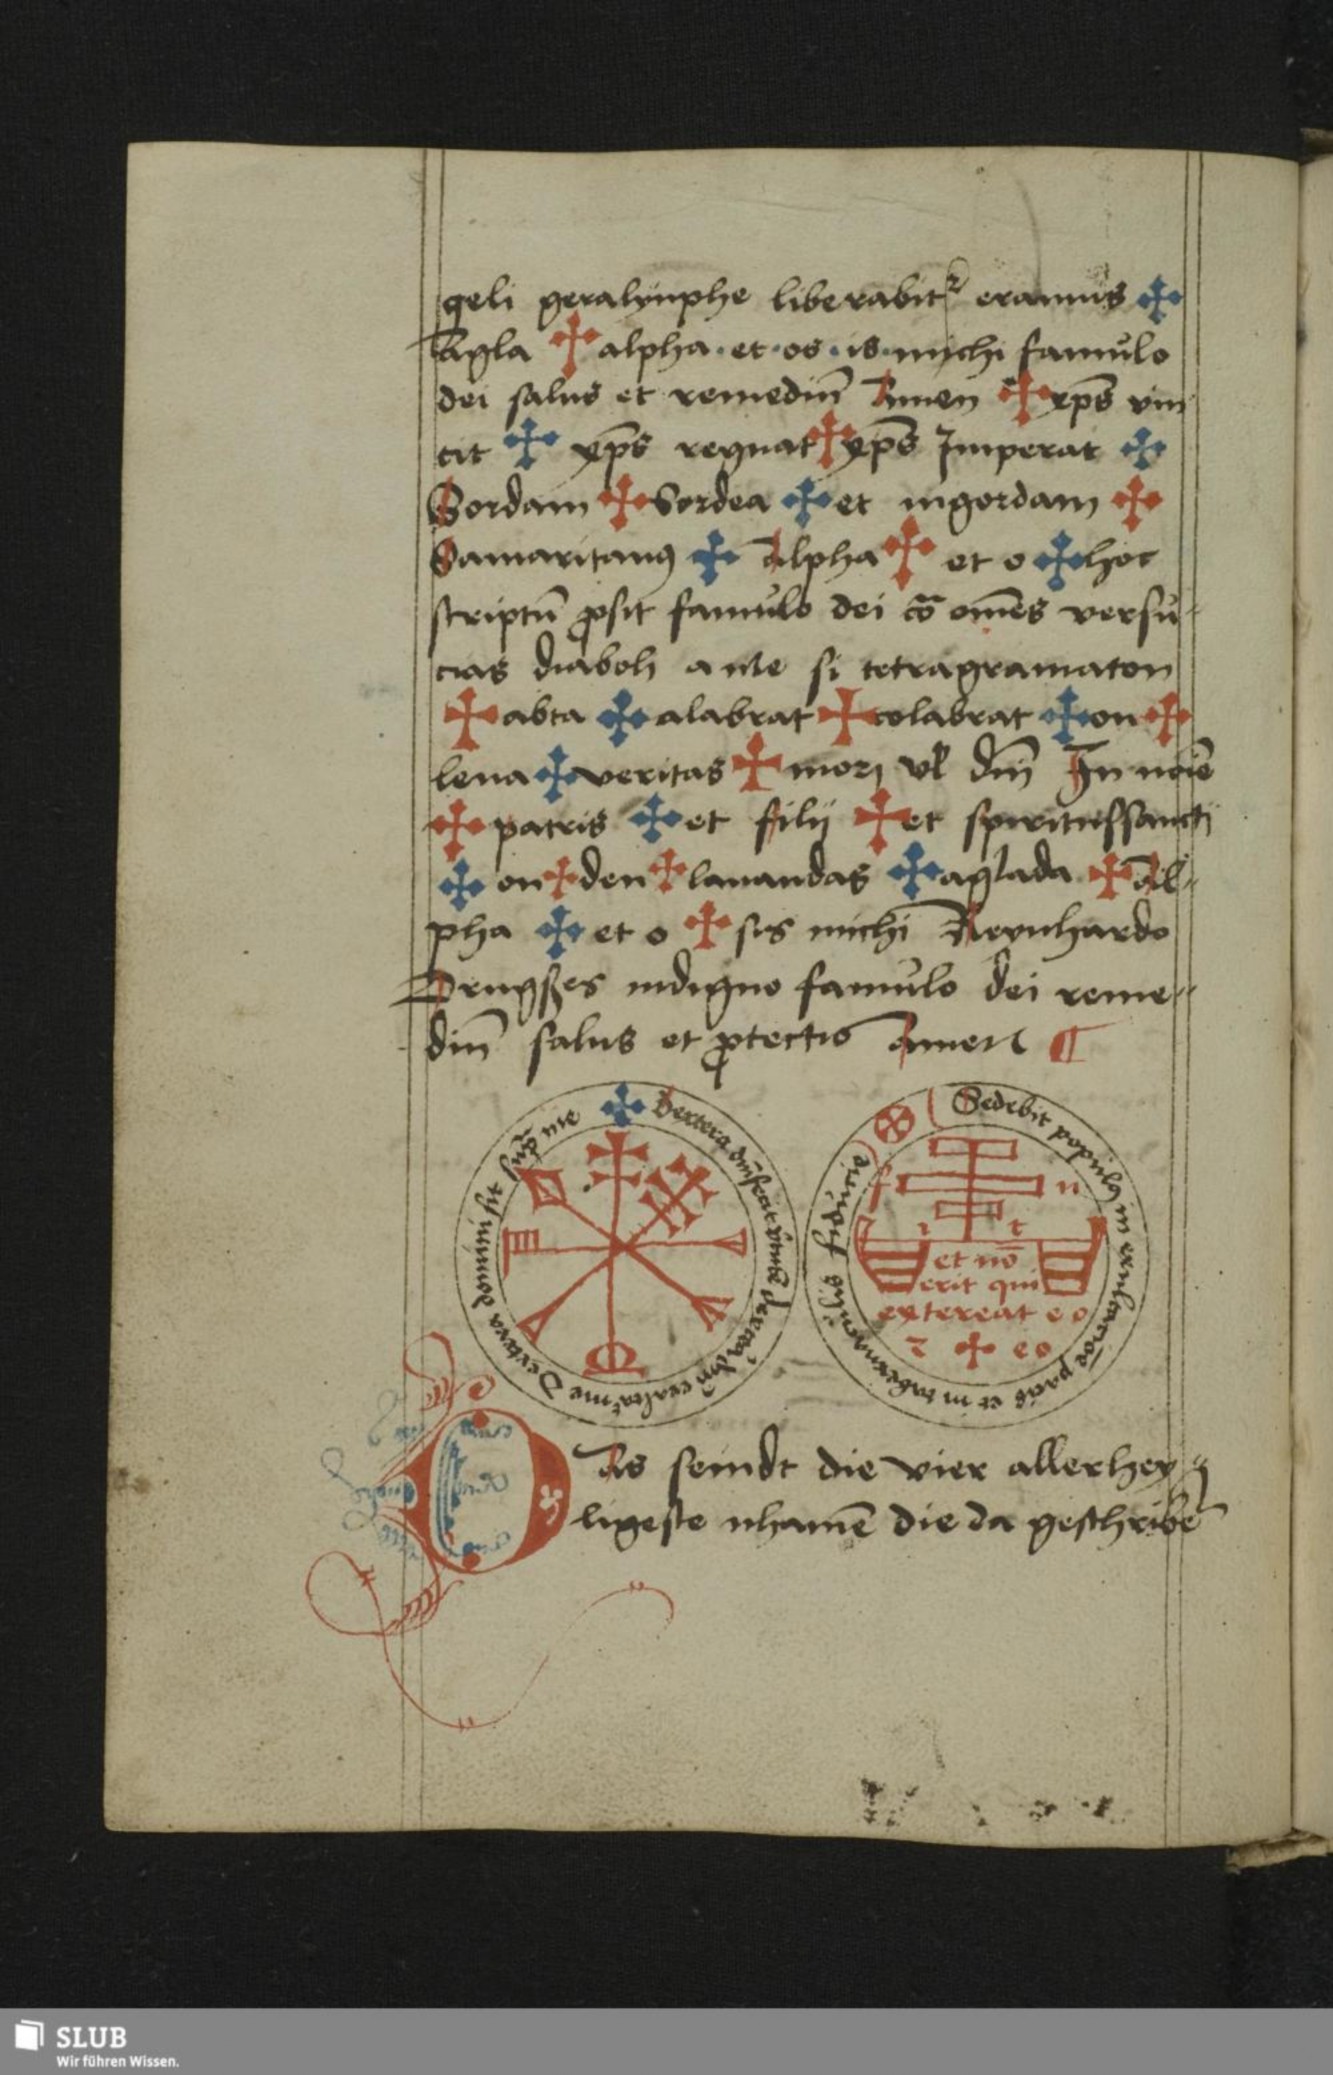 geli geralynphe liberabitr eramus ✠
Agla ✠ alpha · et · os · is · michi famulo
dei salus et remediū Amen ✠ xp̄s vin
cit ✠ xp̄s regnat ✠ xp̄s Imperat ✠
Gordam ✠ Gordea ✠ et ingordam ✠
Samaritanꝯ ✠ Alpha ✠ et o ✠ hoc
scriptū ꝓsit famulo dei cō om̄es versu-
cias diaboli a me si tetragramaton
✠ abta ✠ alabrat ✠ colabrat ✠ on ✠
lena ✠ veritas ✠ mori vl dm̄ In noīe
✠ patris ✠ et filij ✠ et spiritussancti
✠ on ✠ den ✠ lauandas ✠ aglada ✠ Al-
pha ✠ et o ✠ sis michi Reynhardo
Drugsses indigno famulo dei reme-
diū salus et ꝓtectio Amen ¶
✠ Dextera dn̄i fecit dextera dn̄i exaltat me Dextera domini sit sup̄ me
Sedebit populꝯ in pacis et in fiducie
f n
i t
et nō
erit qui
extereat eo
z ✠ eo
Das seindt die vier allerhey-
ligeste nhamē die da geschribē
SLUB
Wir führen Wissen.